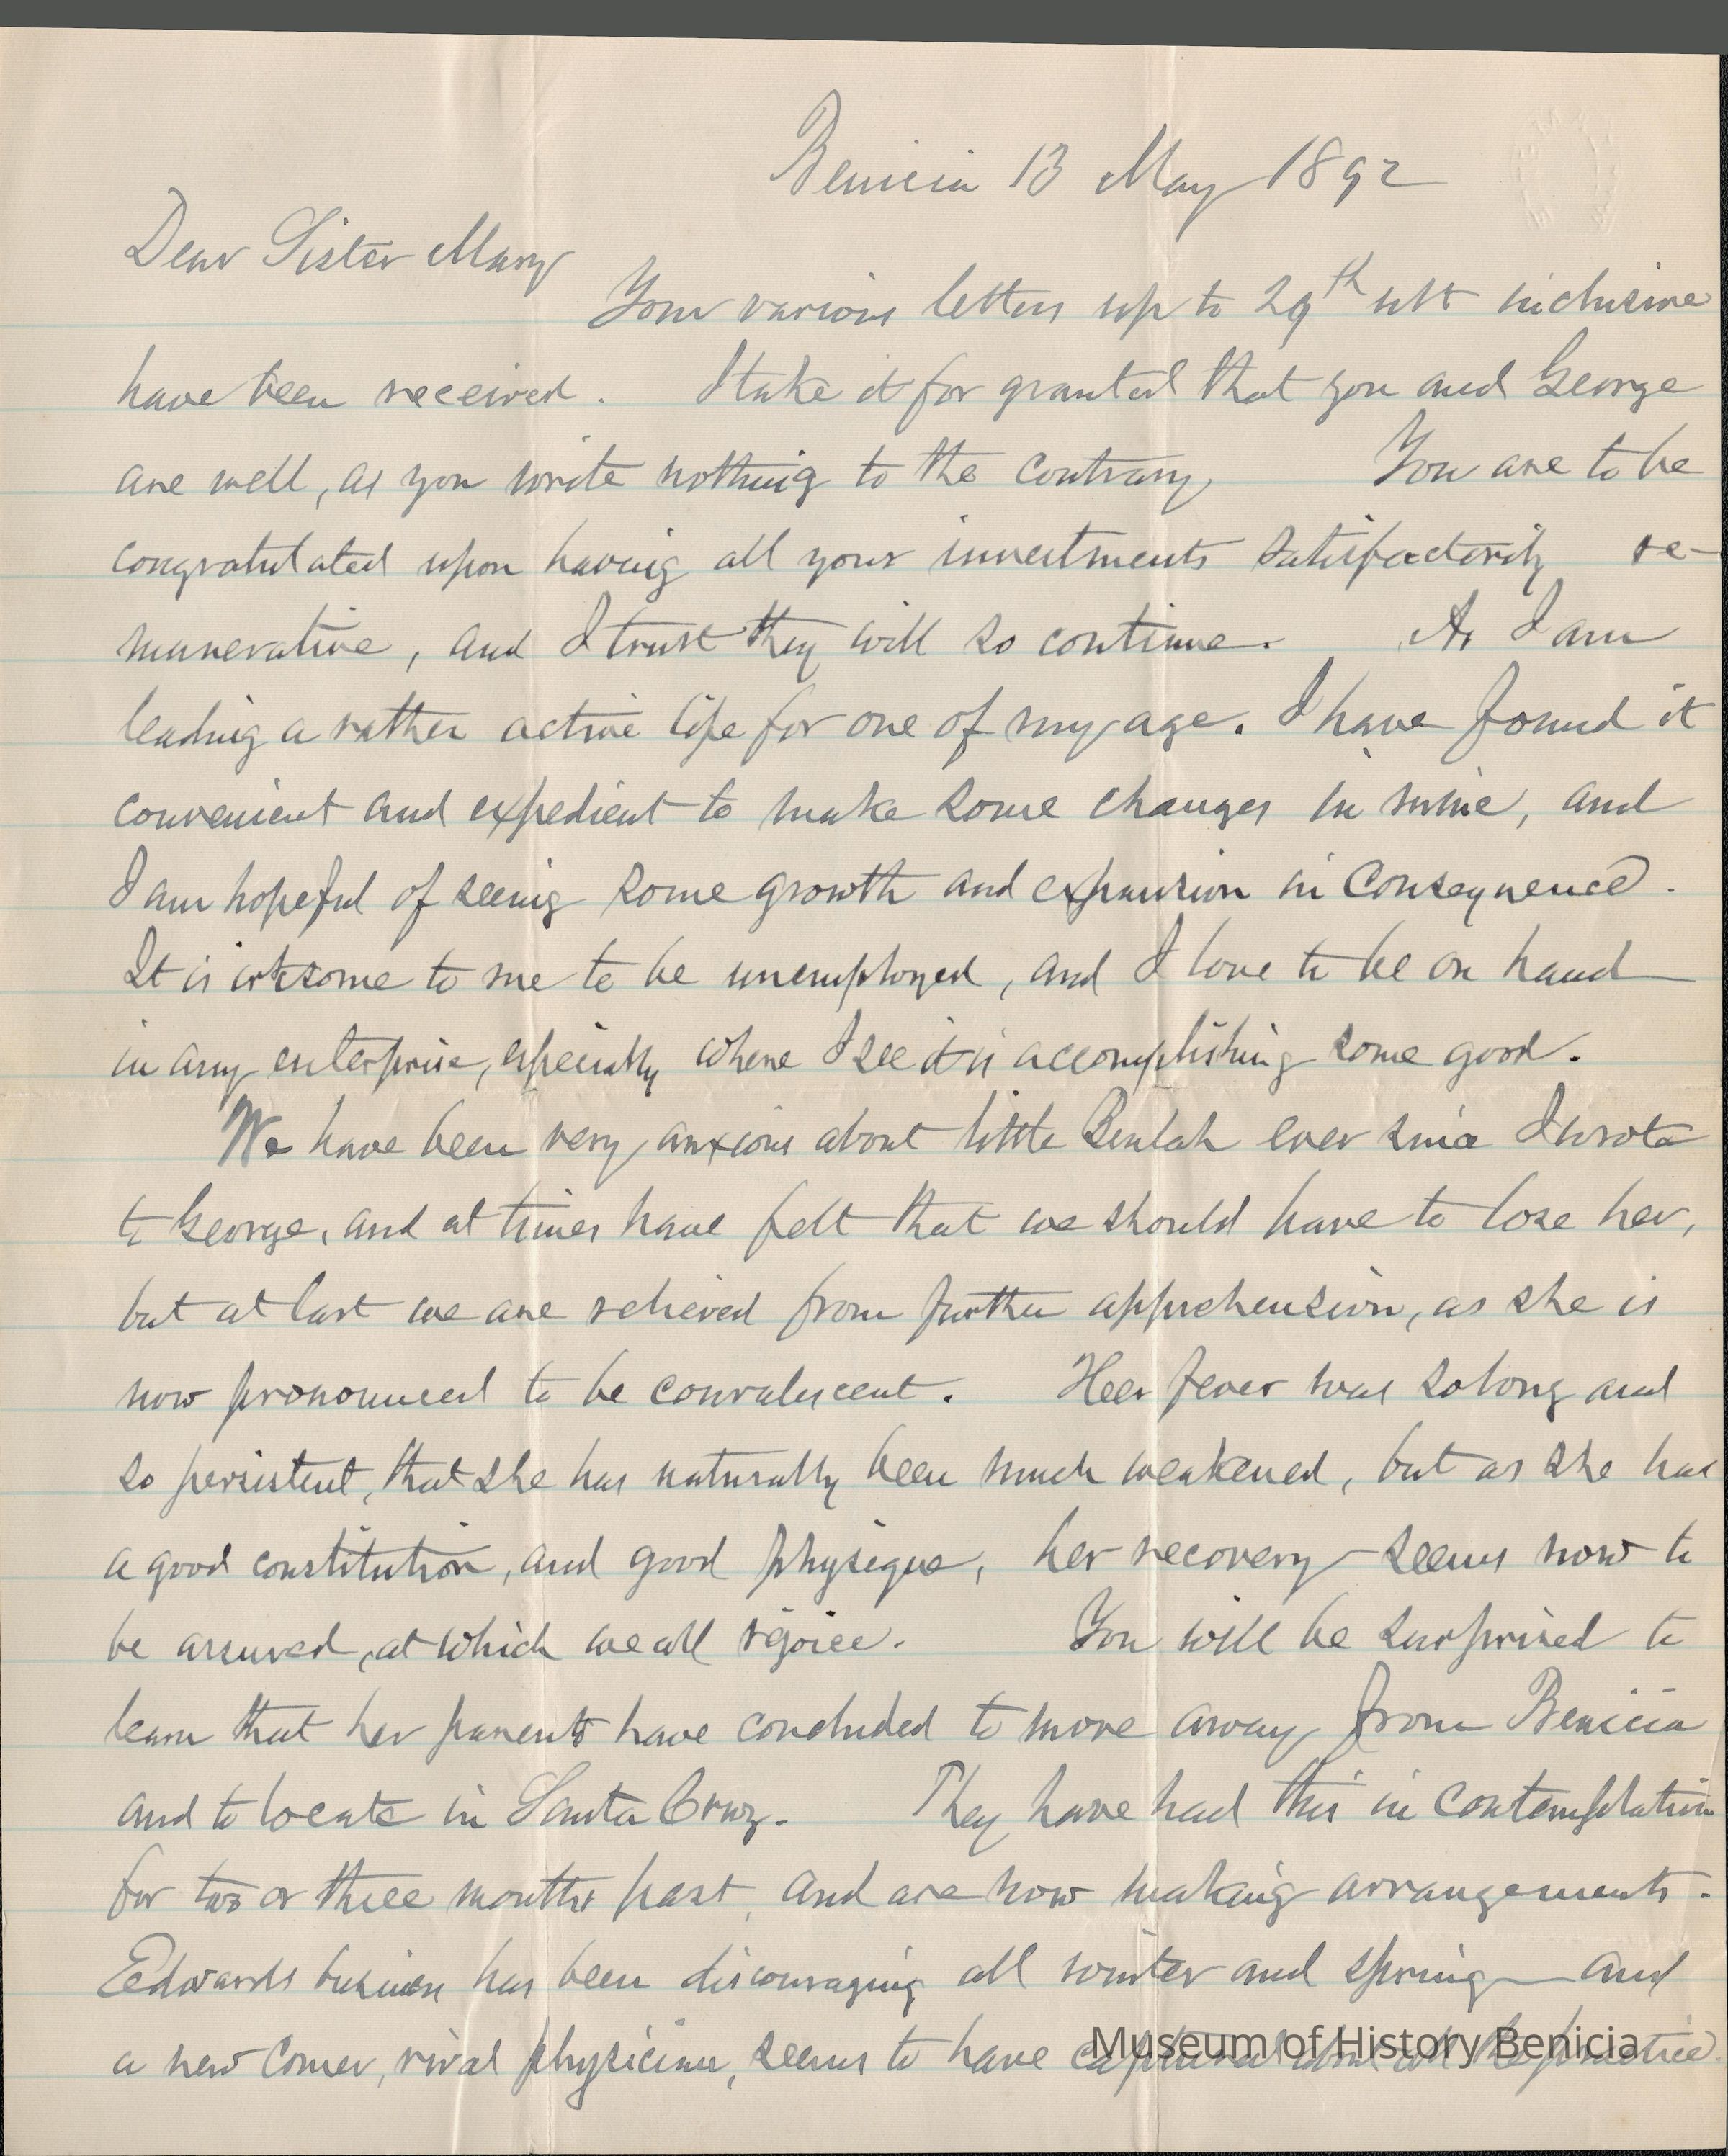 Benicia 13 May 1892
Dear Sister Mary
Your various letters up to 29th ult inclusive
have been received. I take it for granted that you and George
are well, as you write nothing to the contrary, You are to be
congratulated upon having all your investments satisfactorily re-
munerative, and I trust they will so continue. As I am
leading a rather active life for one of my age. I have found it
convenient and expedient to make some changes in mine, and
I am hopeful of seeing some growth and expansion in consequence.
It is irksome to me to be unemployed, and I love to be on hand
in any enterprise, especially where I see it is accomplishing some good.
We have been very anxious about little Beulah ever since I wrote
to George, and at times have felt that we should have to lose her,
but at last we are relieved from further apprehension, as she is
now pronounced to be convalescent. Her fever was so long and
so persistent, that she has naturally been much weakened, but as she has
a good constitution, and good physique, her recovery seems now to
be assured, at which we all rejoice. You will be surprised to
learn that her parents have concluded to move away from Benicia
and to locate in Santa Cruz. They have had this in contemplation
for two or three months past, and are now making arrangements.
Edwards business has been discouraging all winter and spring — and
a new comer, rival physician, seems to have captured all the practice.
Museum of History Benicia